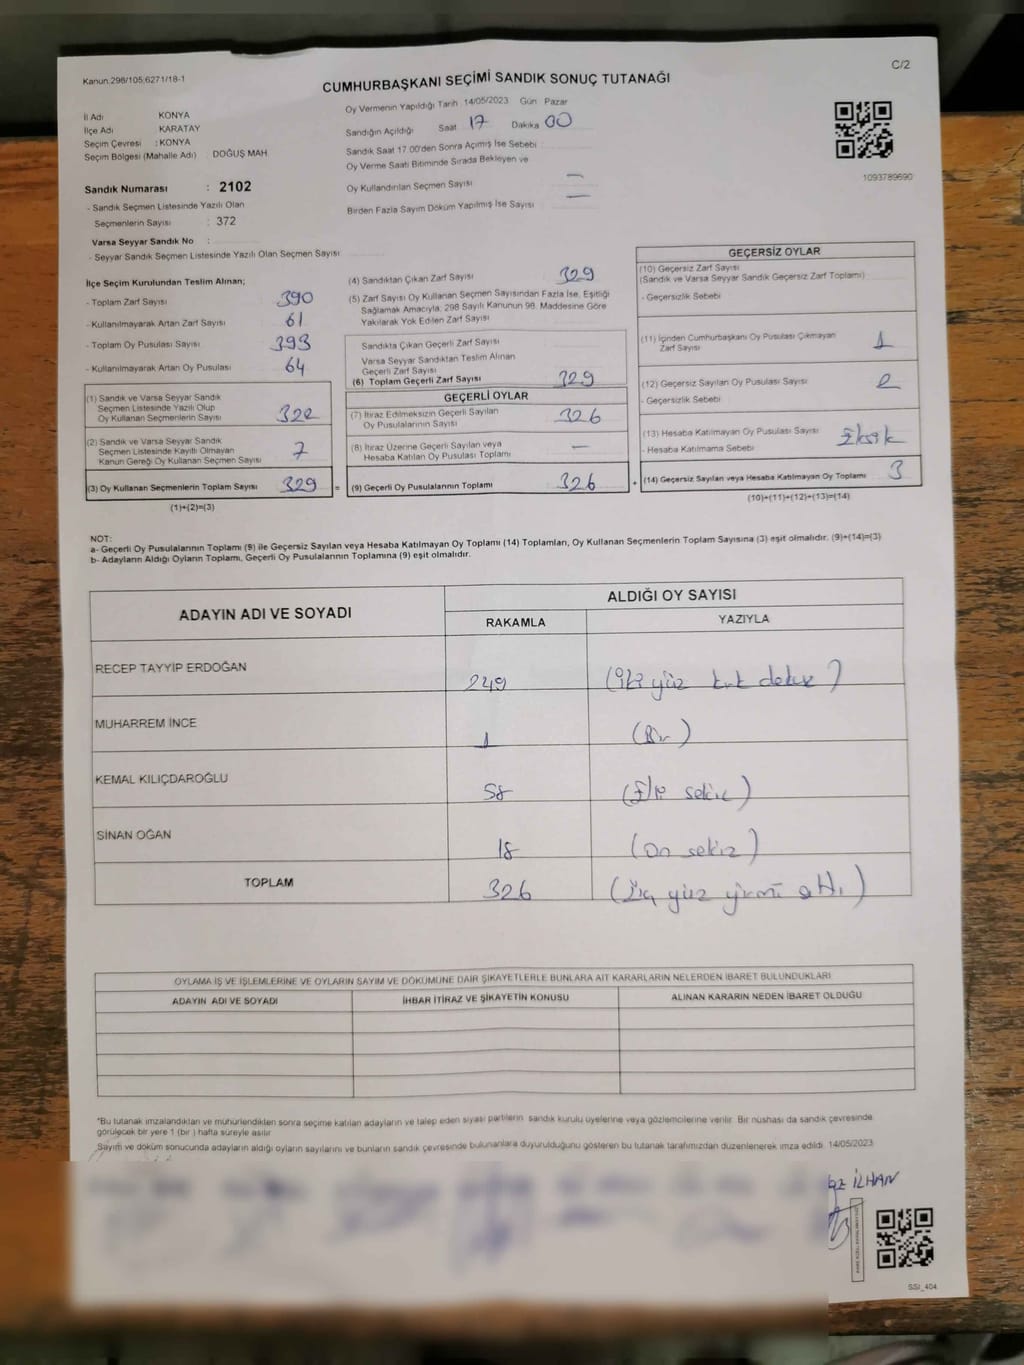 Kanun.298/105;6271/18-1
C/2
CUMHURBAŞKANI SEÇİMİ SANDIK SONUÇ TUTANAĞI
İl Adı KONYA
İlçe Adı KARATAY
Seçim Çevresi : KONYA
Seçim Bölgesi (Mahalle Adı) DOĞUŞ MAH.
Oy Vermenin Yapıldığı Tarih 14/05/2023 Gün Pazar
Sandığın Açıldığı Saat 17 Dakika 00
Sandık Saat 17.00'den Sonra Açımış İse Sebebi :
Oy Verme Saati Bitiminde Sırada Bekleyen ve
Oy Kullandırılan Seçmen Sayısı —
Birden Fazla Sayım Döküm Yapılmış İse Sayısı —
1093789690
Sandık Numarası : 2102
- Sandık Seçmen Listesinde Yazılı Olan
Seçmenlerin Sayısı : 372
Varsa Seyyar Sandık No :
- Seyyar Sandık Seçmen Listesinde Yazılı Olan Seçmen Sayısı :
İlçe Seçim Kurulundan Teslim Alınan;
- Toplam Zarf Sayısı 390
- Kullanılmayarak Artan Zarf Sayısı 61
- Toplam Oy Pusulası Sayısı 393
- Kullanılmayarak Artan Oy Pusulası 64
(1) Sandık ve Varsa Seyyar Sandık
Seçmen Listesinde Yazılı Olup
Oy Kullanan Seçmenlerin Sayısı 322
(2) Sandık ve Varsa Seyyar Sandık
Seçmen Listesinde Kayıtlı Olmayan
Kanun Gereği Oy Kullanan Seçmen Sayısı 7
(3) Oy Kullanan Seçmenlerin Toplam Sayısı 329 =
(1)+(2)=(3)
(4) Sandıktan Çıkan Zarf Sayısı 329
(5) Zarf Sayısı Oy Kullanan Seçmen Sayısından Fazla İse, Eşitliği
Sağlamak Amacıyla, 298 Sayılı Kanunun 98. Maddesine Göre
Yakılarak Yok Edilen Zarf Sayısı
Sandıkta Çıkan Geçerli Zarf Sayısı
Varsa Seyyar Sandıktan Teslim Alınan
Geçerli Zarf Sayısı
(6) Toplam Geçerli Zarf Sayısı 329
GEÇERLİ OYLAR
(7) İtiraz Edilmeksizin Geçerli Sayılan
Oy Pusulalarının Sayısı 326
(8) İtiraz Üzerine Geçerli Sayılan veya
Hesaba Katılan Oy Pusulası Toplamı —
(9) Geçerli Oy Pusulalarının Toplamı 326 +
GEÇERSİZ OYLAR
(10) Geçersiz Zarf Sayısı
(Sandık ve Varsa Seyyar Sandık Geçersiz Zarf Toplamı)
- Geçersizlik Sebebi
(11) İçinden Cumhurbaşkanı Oy Pusulası Çıkmayan
Zarf Sayısı 1
(12) Geçersiz Sayılan Oy Pusulası Sayısı 2
- Geçersizlik Sebebi
(13) Hesaba Katılmayan Oy Pusulası Sayısı Eksik
- Hesaba Katılmama Sebebi
(14) Geçersiz Sayılan veya Hesaba Katılmayan Oy Toplamı 3
(10)+(11)+(12)+(13)=(14)
NOT:
a- Geçerli Oy Pusulalarının Toplamı (9) ile Geçersiz Sayılan veya Hesaba Katılmayan Oy Toplamı (14) Toplamları, Oy Kullanan Seçmenlerin Toplam Sayısına (3) eşit olmalıdır. (9)+(14)=(3)
b- Adayların Aldığı Oyların Toplamı, Geçerli Oy Pusulalarının Toplamına (9) eşit olmalıdır.
ADAYIN ADI VE SOYADI
ALDIĞI OY SAYISI
RAKAMLA YAZIYLA
RECEP TAYYİP ERDOĞAN 249 (İki yüz kırk dokuz)
MUHARREM İNCE 1 (Bir)
KEMAL KILIÇDAROĞLU 58 (Elli sekiz)
SİNAN OĞAN 18 (On sekiz)
TOPLAM 326 (Üç yüz yirmi altı)
OYLAMA İŞ VE İŞLEMLERİNE VE OYLARIN SAYIM VE DÖKÜMÜNE DAİR ŞİKAYETLERLE BUNLARA AİT KARARLARIN NELERDEN İBARET BULUNDUKLARI
ADAYIN ADI VE SOYADI İHBAR İTİRAZ VE ŞİKAYETİN KONUSU ALINAN KARARIN NEDEN İBARET OLDUĞU
*Bu tutanak imzalandıktan ve mühürlendikten sonra seçime katılan adayların ve talep eden siyasi partilerin sandık kurulu üyelerine veya gözlemcilerine verilir. Bir nüshası da sandık çevresinde
görülecek bir yere 1 (bir) hafta süreyle asılır
Sayım ve döküm sonucunda adayların aldığı oyların sayılarını ve bunların sandık çevresinde bulunanlara duyurulduğunu gösteren bu tutanak tarafımızdan düzenlenerek imza edildi. 14/05/2023
İLHAN
SSI_404